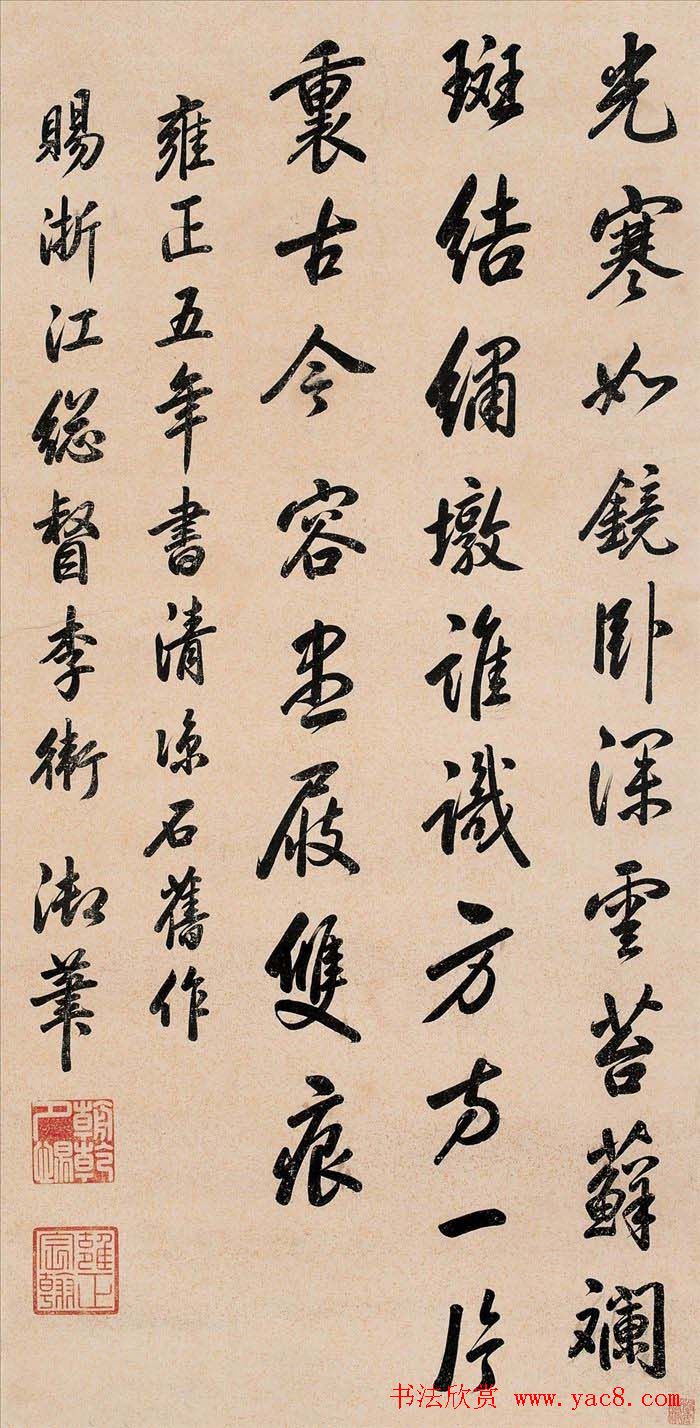 光寒如鏡卧深雲苔蘚斕
斑結繡墩誰識方方一片
裏古今容盡屐雙痕
雍正五年書清涼石舊作
賜浙江總督李衛 御筆
朝乾夕惕
雍正宸翰
书法欣赏 www.yac8.com